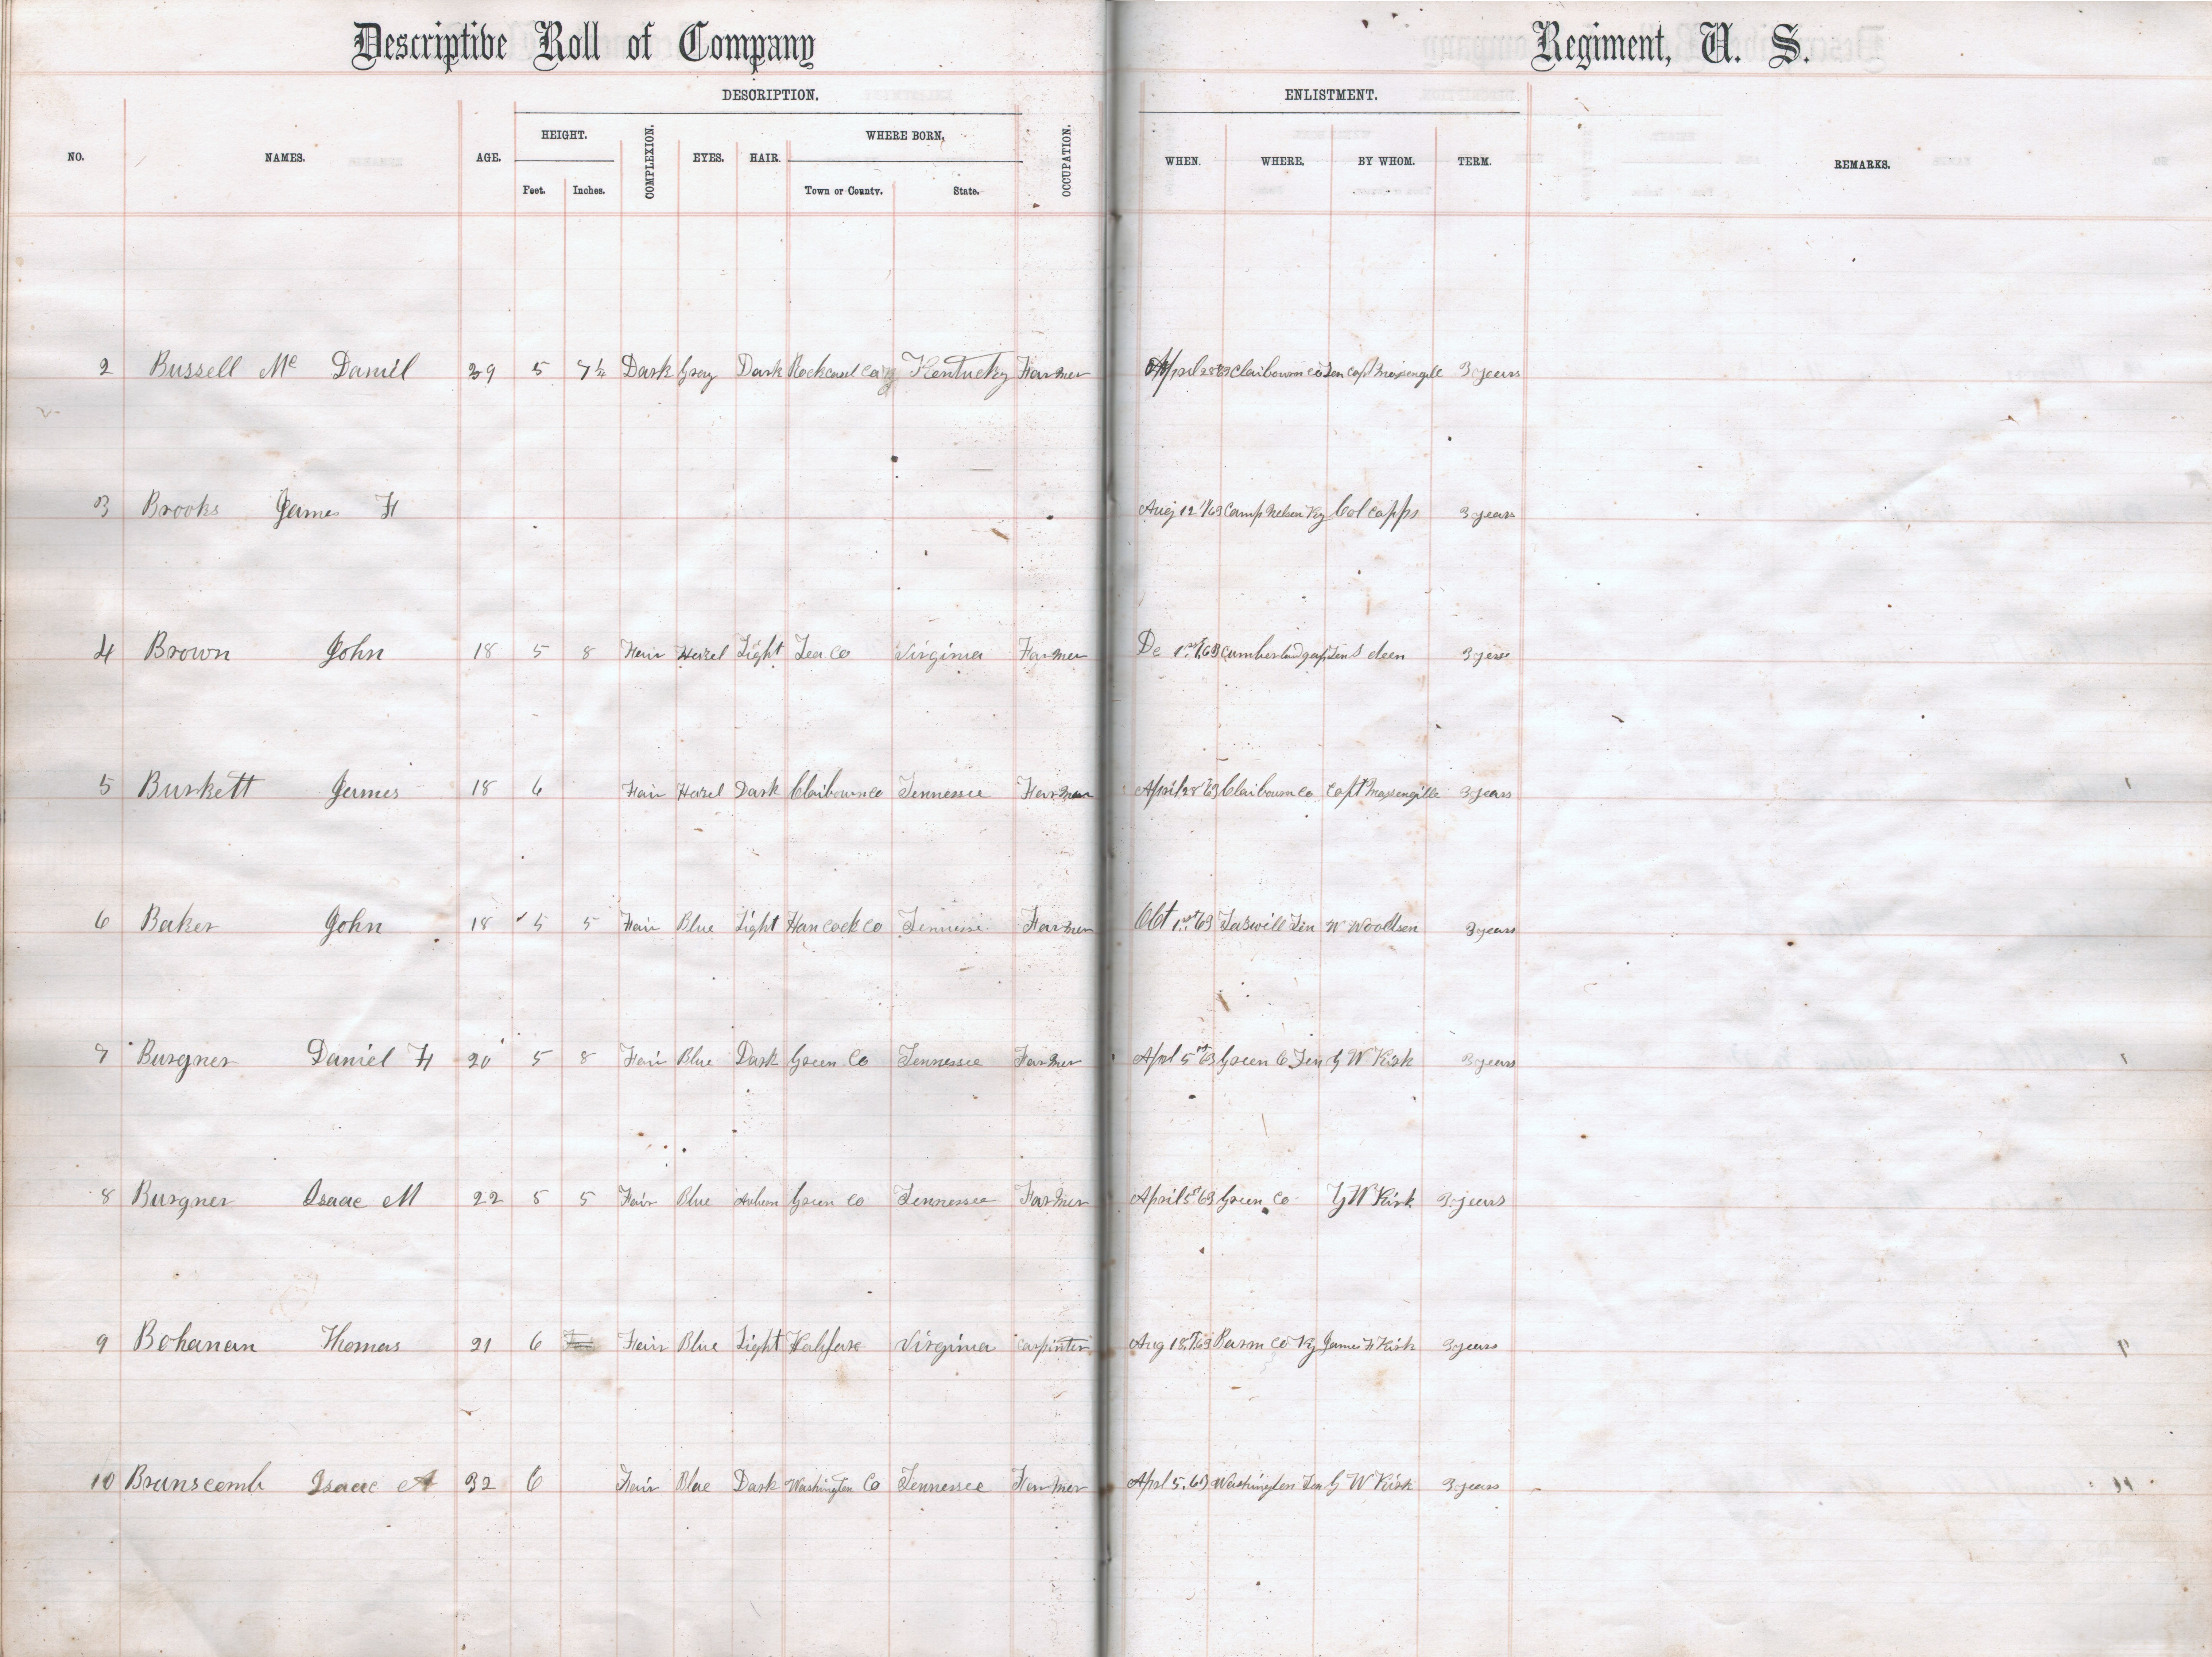 Descriptive Roll of Company Regiment, U. S.
DESCRIPTION. ENLISTMENT.
NO. NAMES. AGE. HEIGHT. COMPLEXION. EYES. HAIR. WHERE BORN, OCCUPATION. WHEN. WHERE. BY WHOM. TERM. REMARKS.
Feet. Inches. Town or County. State.
2 Bussell Mc Daniel 39 5 7½ Dark Gray Dark Kentucky Farmer April 28 63 Claibourn co Ten capt Massengille 3 years
3 Brooks James H Aug 12 1/63 Camp Nelson Ky Col capps 3 years
4 Brown John 18 5 8 Fair Hazel Light Lea Co Virginia Farmer De 1st 63 Cumberland gap Ten S deen
5 Burkett James 18 6 Fair Hazel Dark Claibourn co Tennessee Farmer April 28 63 Claibourn Co Capt Massengille 3 years
6 Baker John 18 5 5 Fair Blue Light Hancock co Tennessee Farmer Oct 1st 63 Taswill Ten W Woodsen 3 years
7 Burgner Daniel H 20 5 8 Fair Blue Dark Green Co Tennessee Farmer Aprl 5 63 Green C Ten G W Kirk 3 years
8 Burgner Isaac M 22 5 5 Fair Blue Auburn Green Co Tennessee Farmer April 5 63 Green Co G W Kirk 3 years
9 Bohanan Thomas 21 6 Fair Blue Light Halifax Virginia Carpinter Aug 18 63 Co Ky James H Kirk 3 years
10 Branscomb Isaac A 32 6 Fair Blue Dark Washington Co Tennessee Farmer Aprl 5. 63 Washington Ten G W Kirk 3 years